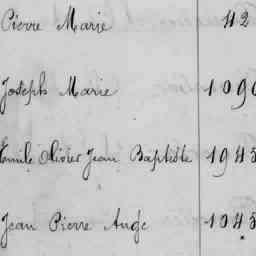 Pierre Marie 42
Joseph Marie 1090
Emile Olivier Jean Baptiste 1945
Jean Pierre Ange 1045